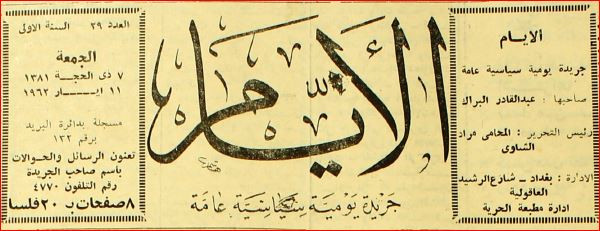 الايام
جريدة يومية سياسية عامة
صاحبها : عبدالقادر البراك
رئيس التحرير : المحامي مراد
الشاوى
الادارة : بغداد ــ شارع الرشيد
العاقولية
ادارة مطبعة الحرية
الأيام
جريدة يومية سياسية عامة
العدد ٢٩ السنة الاولى
الجمعة
٧ ذى الحجة ١٣٨١
١١ ايــــار ١٩٦٢
مسجلة بدائرة البريد
برقم ١٣٢
تعنون الرسائل والحوالات
باسم صاحب الجريدة
رقم التلفون ٤٧٧٠
٨ صفحات بـ ٢٠ فلسا